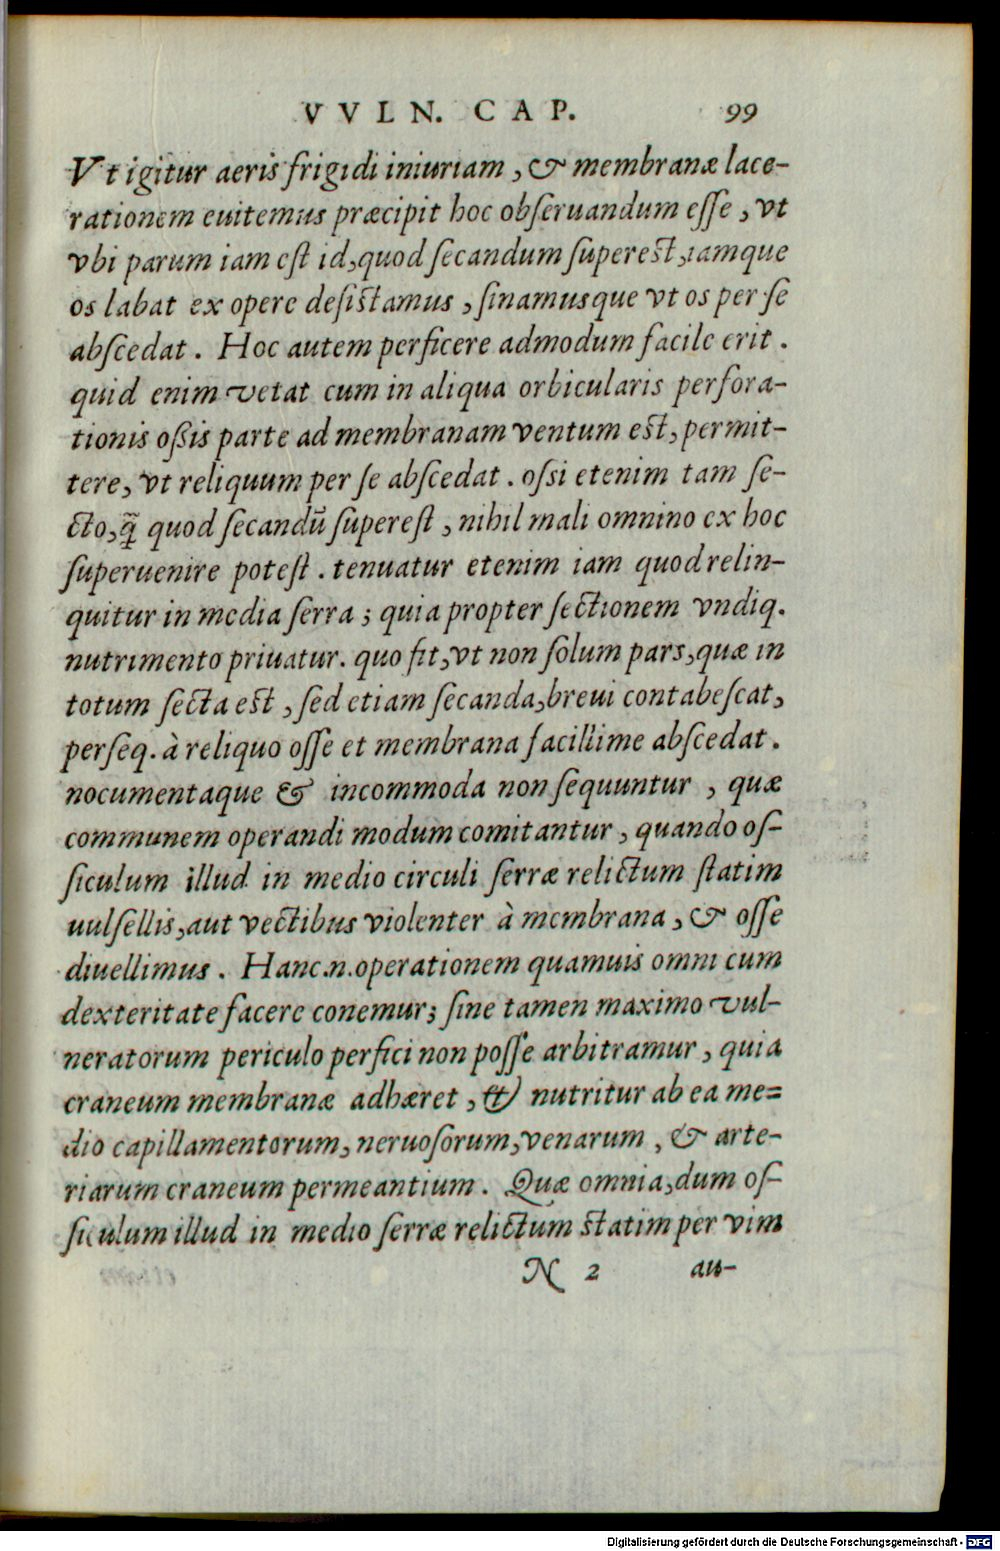 VVLN. CAP. 99
Vt igitur aeris frigidi iniuriam, & membranæ lace-
rationem euitemus præcipit hoc obseruandum esse, vt
vbi parum iam est id, quod secandum superest, iamque
os labat ex opere desistamus, sinamusque vt os per se
abscedat. Hoc autem perficere admodum facile erit.
quid enim vetat cum in aliqua orbicularis perfora-
tionis oßis parte ad membranam ventum est, permit-
tere, vt reliquum per se abscedat. ossi etenim tam se-
cto, q̃ quod secandũ superest, nihil mali omnino ex hoc
superuenire potest. tenuatur etenim iam quod relin-
quitur in media serra; quia propter sectionem vndiq.
nutrimento priuatur. quo fit, vt non solum pars, quæ in
totum secta est, sed etiam secanda, breui contabescat,
perseq. à reliquo osse et membrana facillime abscedat.
nocumentaque & incommoda non sequuntur, quæ
communem operandi modum comitantur, quando os-
siculum illud in medio circuli serræ relictum statim
uulsellis, aut vectibus violenter à membrana, & osse
diuellimus. Hanc.n.operationem quamuis omni cum
dexteritate facere conemur; sine tamen maximo vul-
neratorum periculo perfici non posse arbitramur, quia
craneum membranæ adhæret, & nutritur ab ea me=
dio capillamentorum, neruosorum, venarum, & arte-
riarum craneum permeantium. Quæ omnia, dum os-
siculum illud in medio serræ relictum statim per vim
N 2 au-
Digitalisierung gefördert durch die Deutsche Forschungsgemeinschaft - DFG